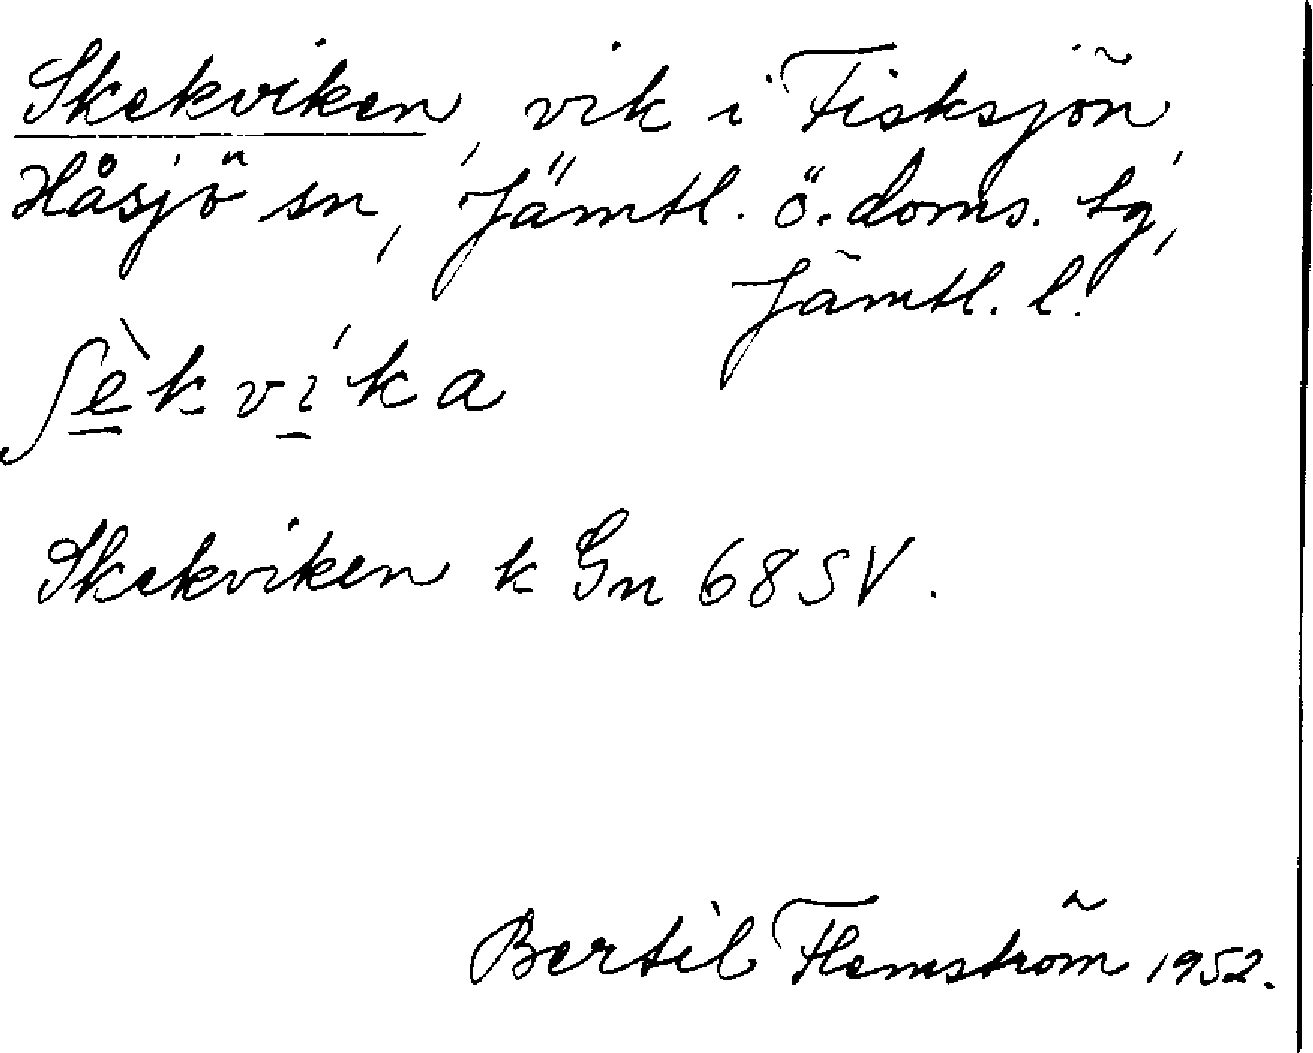 Skekviken, vik i Fisksjön,
Håsjö sn, Jämtl. ö. doms. tg,
Jämtl. l.
ʃèkvíka
Skekviken k Gn 68 SV.
Bertil Flemström 1952.